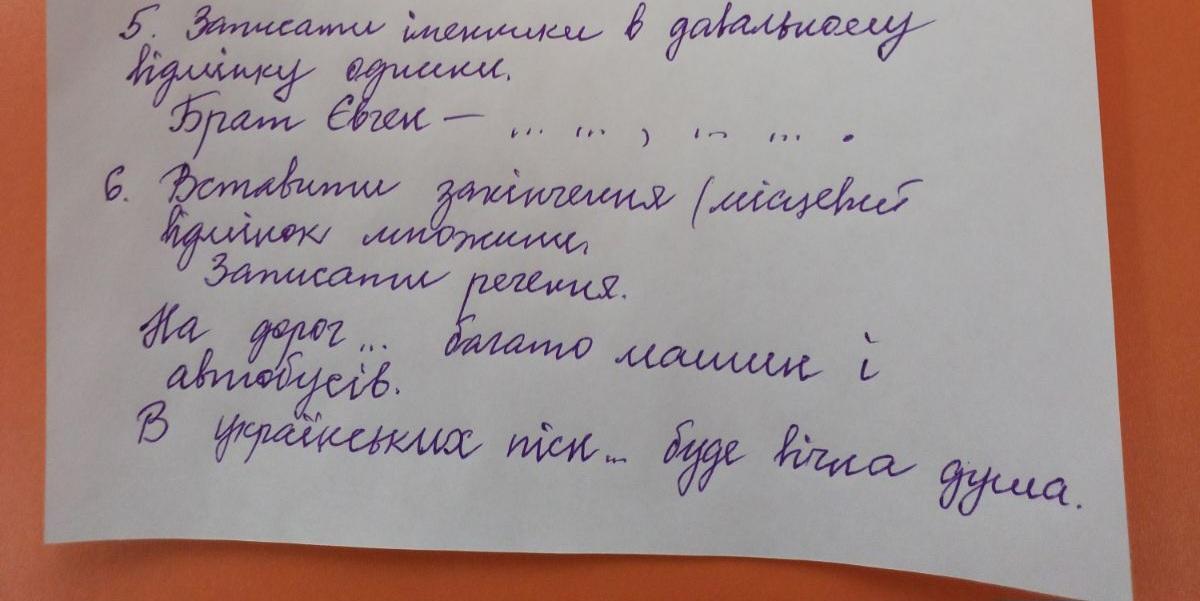 5. Записати іменники в давальному
відмінку однини.
Брат Євген — ... ... , ... ... .
6. Вставити закінчення (місцевий
відмінок множини.
Записати речення.
На дорог... багато машин і
автобусів.
В українських пісн... буде вічна душа.